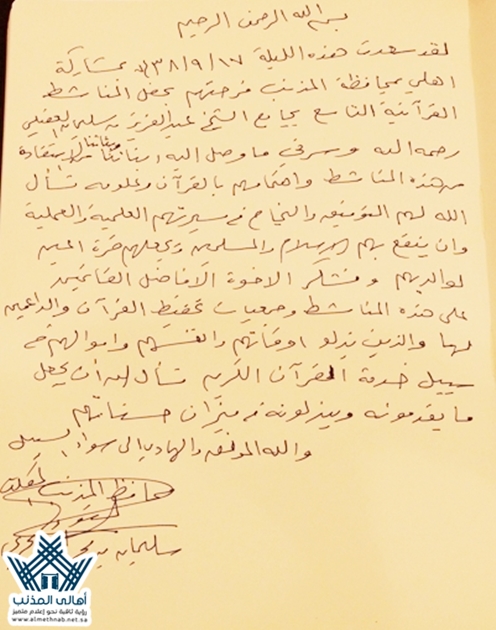 بسم الله الرحمن الرحيم
لقد سعدت هذه الليلة ١٧/٩/٣٨ هـ بمشاركة
اهلي بمحافظة المذنب فرحتهم بحفل المناشط
القرآنية التاسع بجامع الشيخ عبدالعزيز بن سليمان العقيلي
رحمه الله وسرني ما وصل اليه ابنائنا وبناتنا من الاستفادة
من هذه المناشط واهتمامهم بالقرآن وعلومه نسأل
الله لهم التوفيق والنجاح في مسيرتهم العلمية والعملية
وان ينفع بهم الاسلام والمسلمين ويجعلهم قرة العين
لوالديهم ونشكر الاخوة الافاضل القائمين
على هذه المناشط وجمعيات تحفيظ القرآن والداعمين
لها والذين بذلو اوقاتهم وانفسهم واموالهم في
سبيل خدمة القرآن الكريم نسأل الله أن يجعل
ما يقدمونه ويبذلونه في ميزان حسناتهم
والله الموفق والهادي الى سواء السبيل
محافظ المذنب المكلف
سليمان بن
أهالي المذنب
رؤية ثاقبة نحو إعلام متميز
www.almethnab.net.sa